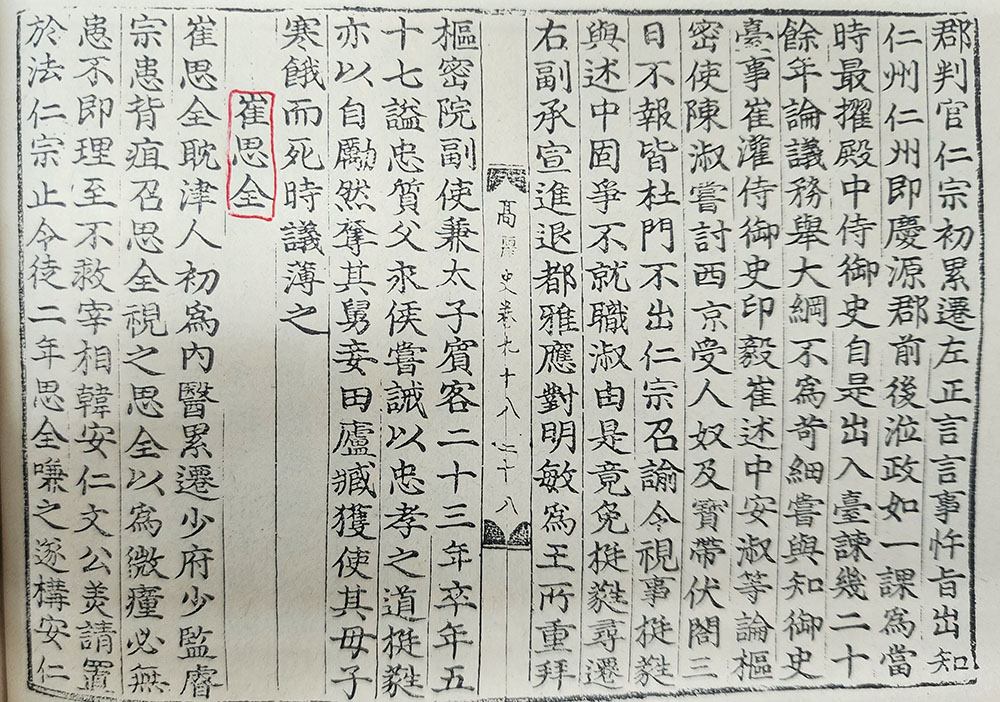 郡判官仁宗初累遷左正言言事忤旨出知
仁州仁州即慶源郡前後涖政如一課爲當
時最擢殿中侍御史自是出入臺諫幾二十
餘年論議務舉大綱不爲苛細嘗與知御史
臺事崔灌侍御史印毅崔述中安淑等論樞
密使陳淑嘗討西京受人奴及寶帶伏閤三
日不報皆杜門不出仁宗召諭令視事挺蕤
與述中固爭不就職淑由是竟免挺蕤尋遷
右副承宣進退都雅應對明敏爲王所重拜
高麗史卷九十八 二十八
樞密院副使兼太子賓客二十三年卒年五
十七謚忠質父永侯嘗誡以忠孝之道挺蕤
亦以自勵然奪其舅妾田廬臧獲使其母子
寒餓而死時議薄之
崔思全
崔思全耽津人初爲內醫累遷少府少監睿
宗患背疽召思全視之思全以爲微瘇必無
患不即理至不救宰相韓安仁文公美請置
於法仁宗止令徒二年思全嗛之遂構安仁